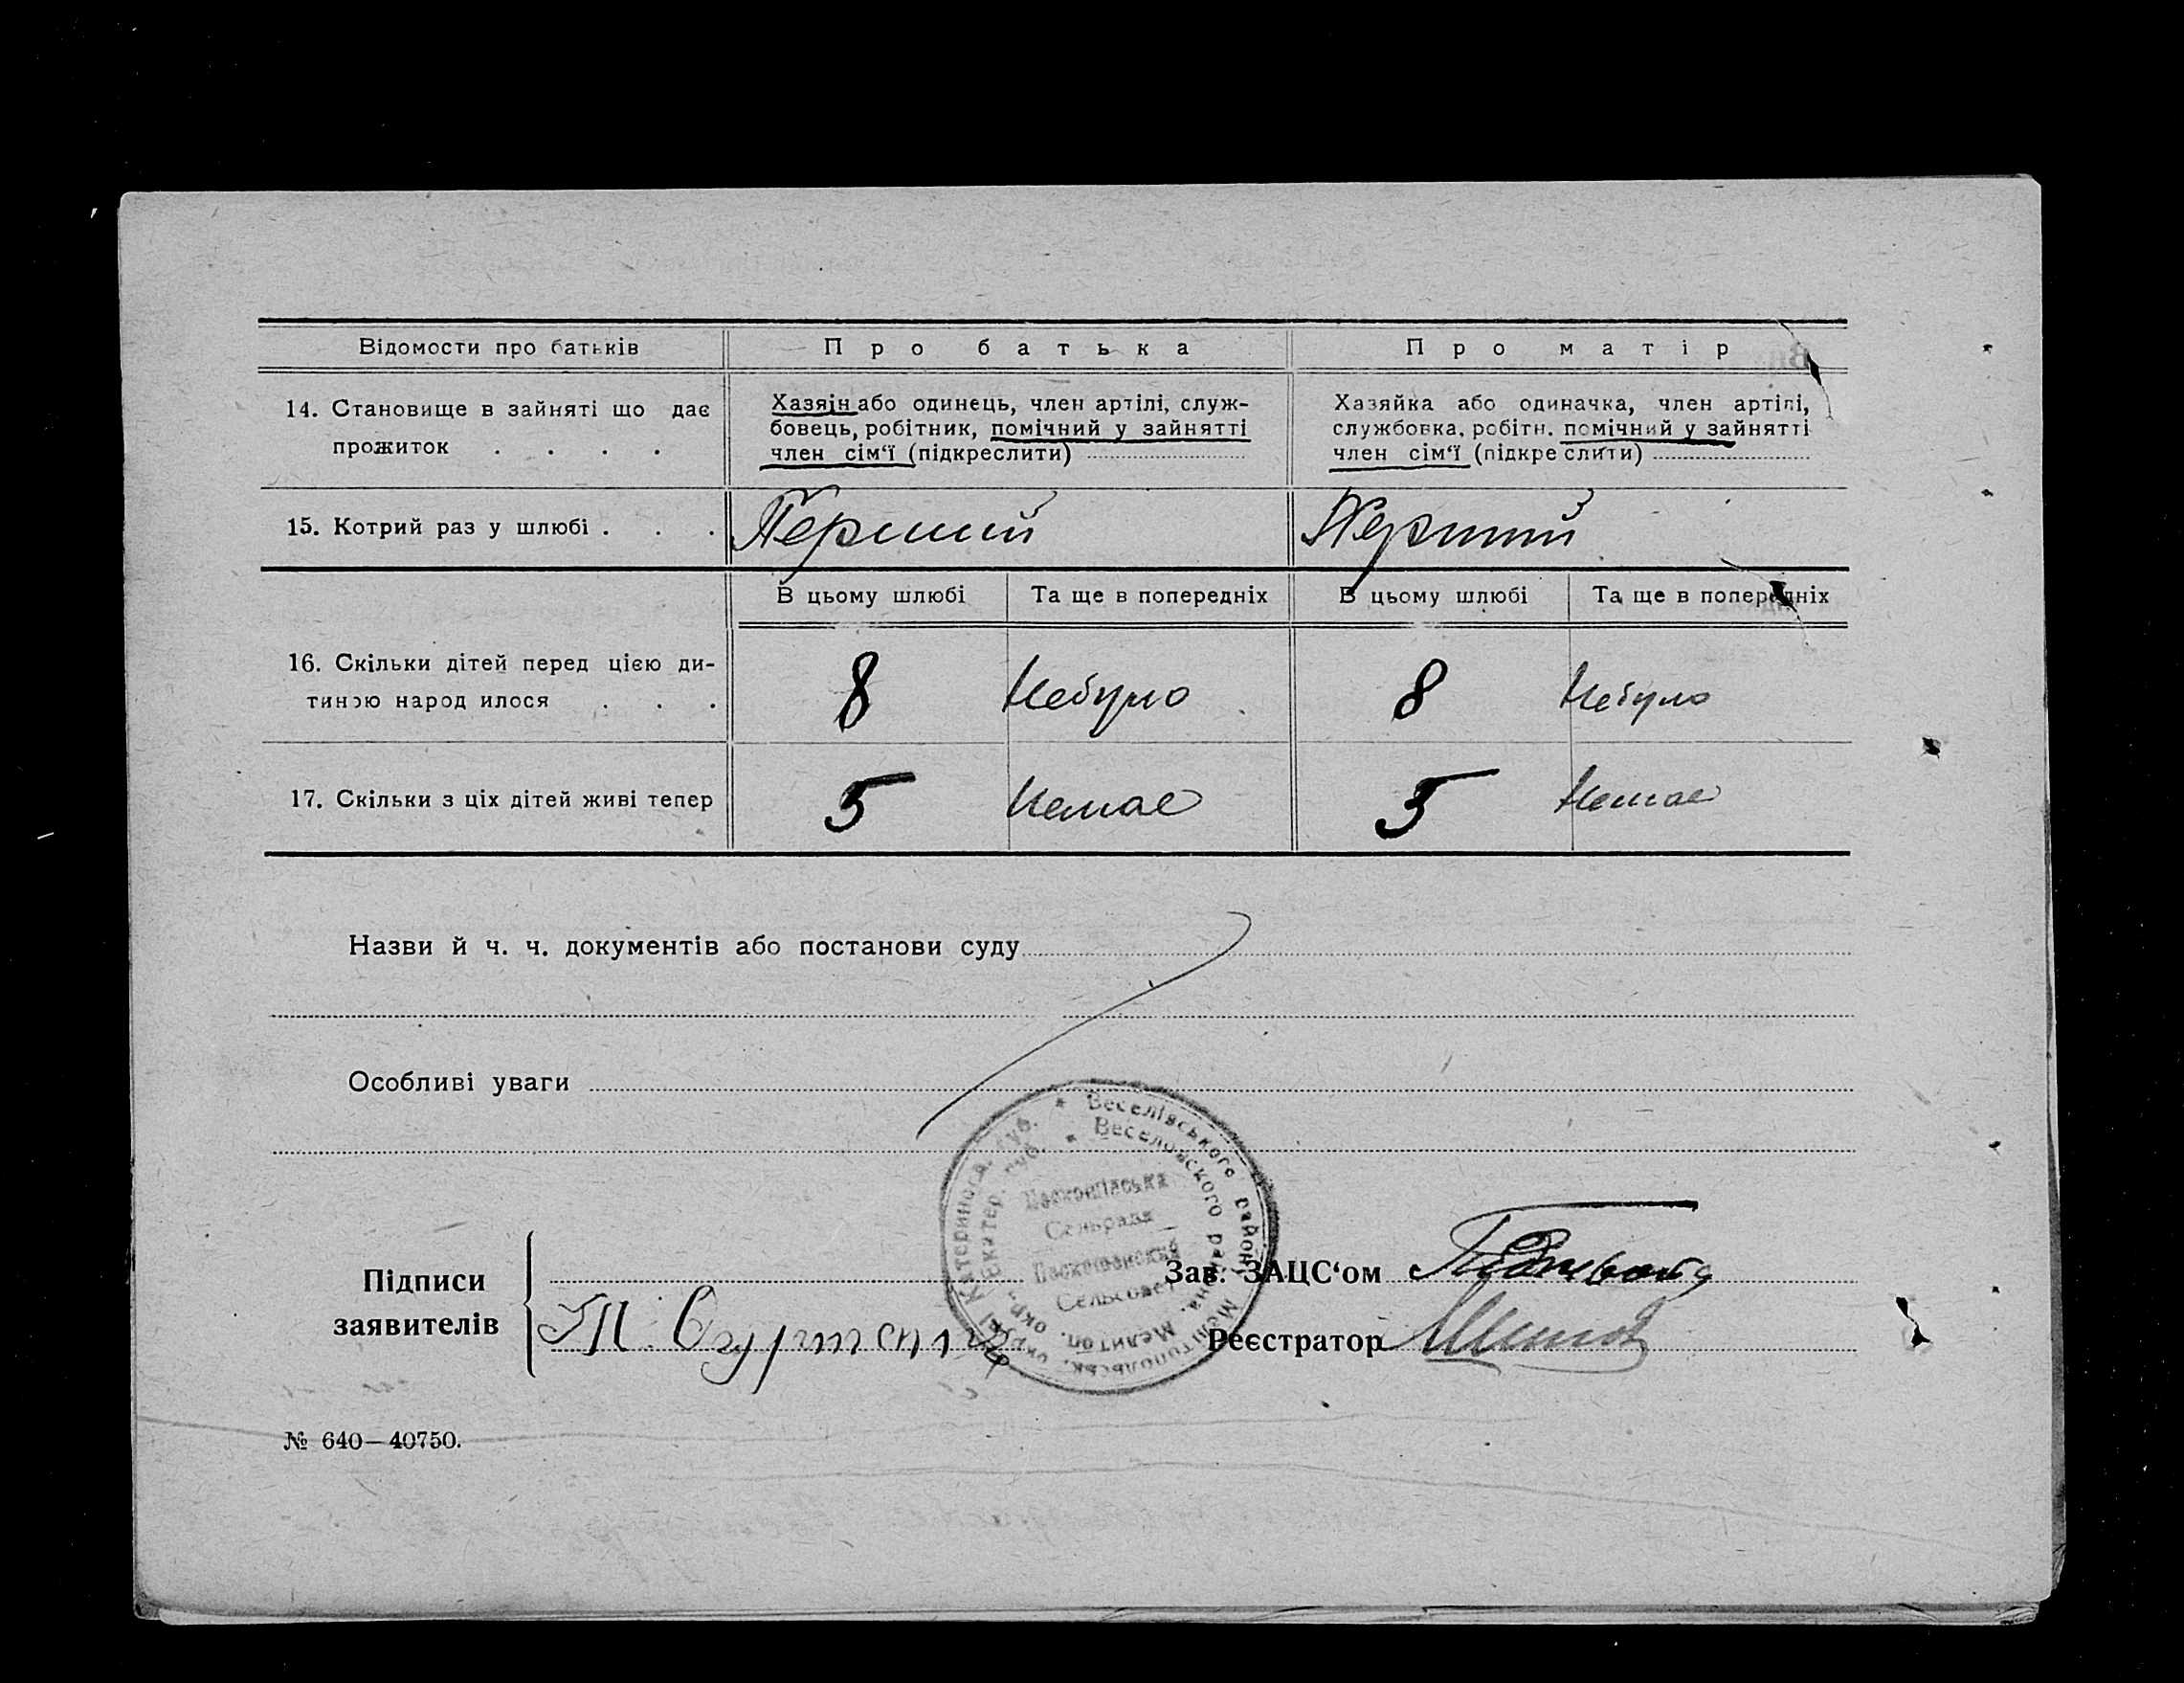 Відомости про батьків
Про батька
Про матір
14. Становище в зайняті що дає
прожиток . . . .
Хазяін або одинець, член артілі, служ-
бовець, робітник, помічний у зайнятті
член сім‘ї (підкреслити)
Хазяйка або одиначка, член артілі,
службовка, робітн. помічний у зайнятті
член сім‘ї (підкреслити)
15. Котрий раз у шлюбі . . .
Перший
Перший
В цьому шлюбі
Та ще в попередніх
В цьому шлюбі
Та ще в попередніх
16. Скільки дітей перед цією ди-
тиною народилося . . .
8
Небуло
8
Небуло
17. Скільки з ціх дітей живі тепер
5
Немає
5
Немає
Назви й ч. ч. документів або постанови суду
Особливі уваги
Веселівського району Мелітопольськ. округи Катеринос. губ.
Веселовского района. Мелитоп. окр. Екатер. губ.
Сельрада
Сельсовет
Підписи
заявителів
Зав. ЗАЦС‘ом
Реєстратор
№ 640—40750.